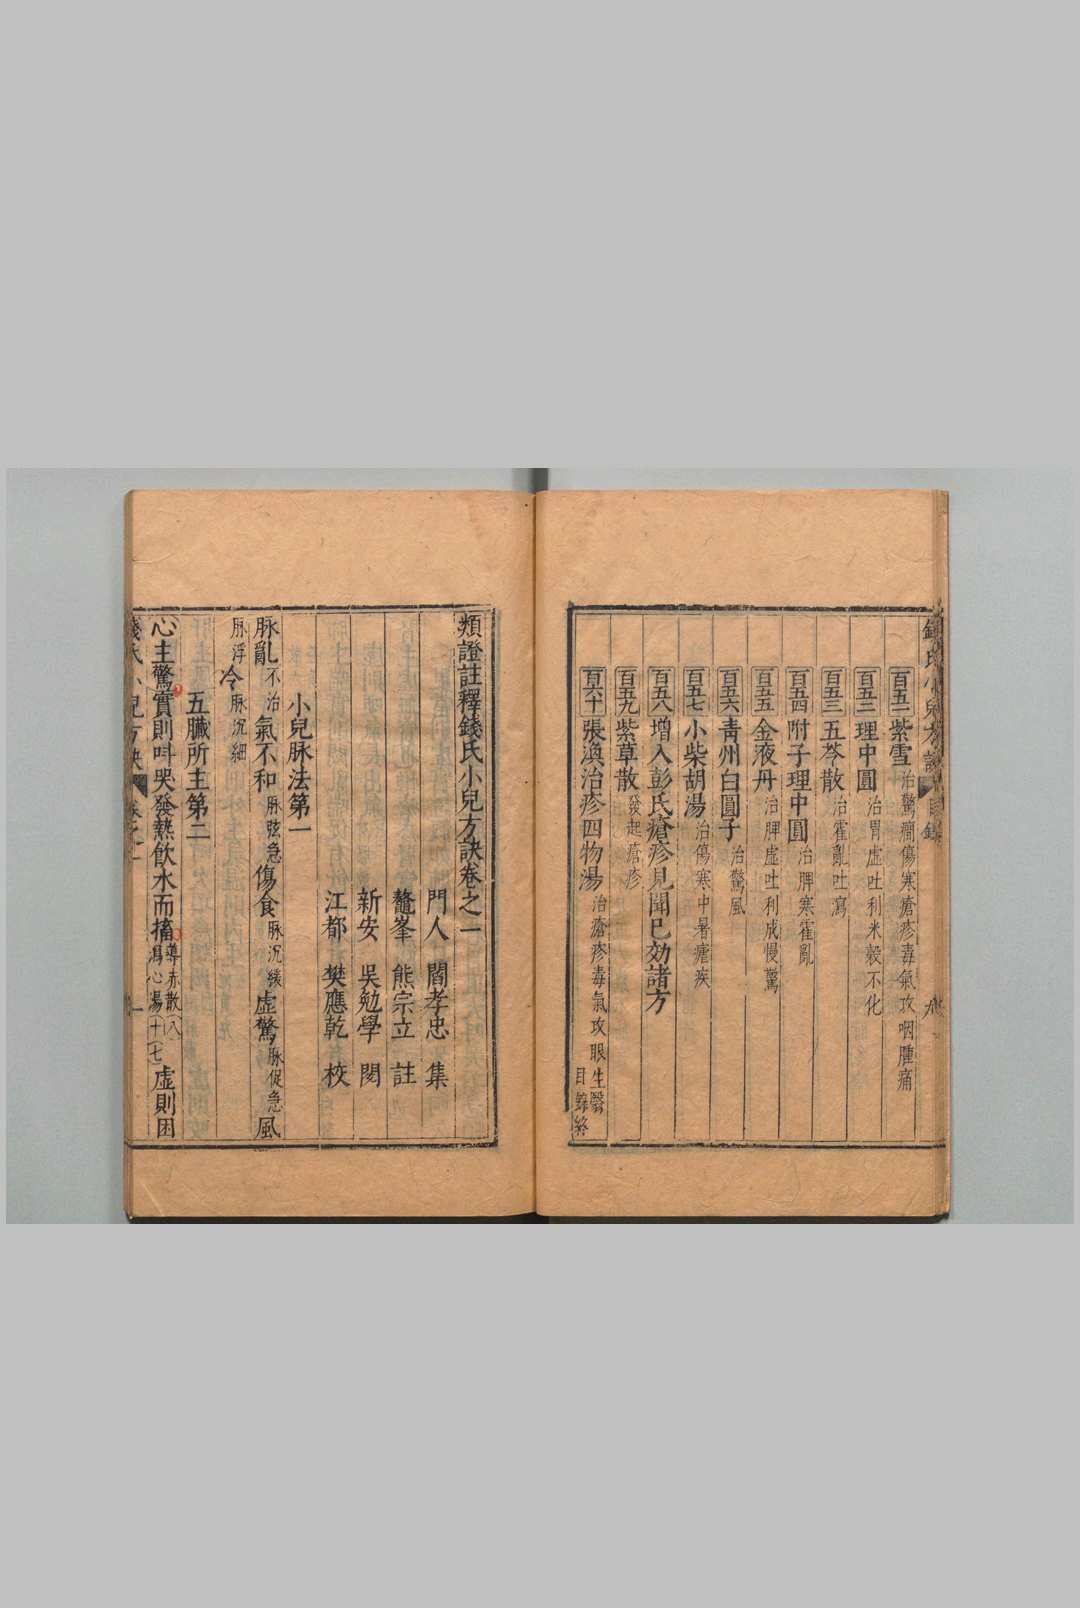 百五一 紫雪 治驚癇傷寒瘡疹毒氣攻咽腫痛
百五二 理中圓 治胃虛吐利米穀不化
百五三 五苓散 治霍亂吐瀉
百五四 附子理中圓 治脾寒霍亂
百五五 金液丹 治脾虛吐利成慢驚
百五六 青州白圓子 治驚風
百五七 小柴胡湯 治傷寒中暑瘧疾
百五八 增入彭氏瘡疹見聞已効諸方
百五九 紫草散 發起瘡疹
百六十 張渙治疹四物湯 治瘡疹毒氣攻眼生翳
目錄終
類證註釋錢氏小兒方訣卷之一
門人 閻孝忠 集
鼇峯 熊宗立 註
新安 吳勉學 閱
江都 樊應乾 校
小兒脉法第一
脉亂 不治 氣不和 脉弦急 傷食 脉沉緩 虛驚 脉促急 風
脉浮 冷 脉沉細
五臟所主第二
心主驚實則叫哭發熱飲水而搐 導赤散八 瀉心湯十七 虛則困
錢氏小兒方訣 卷之一 一